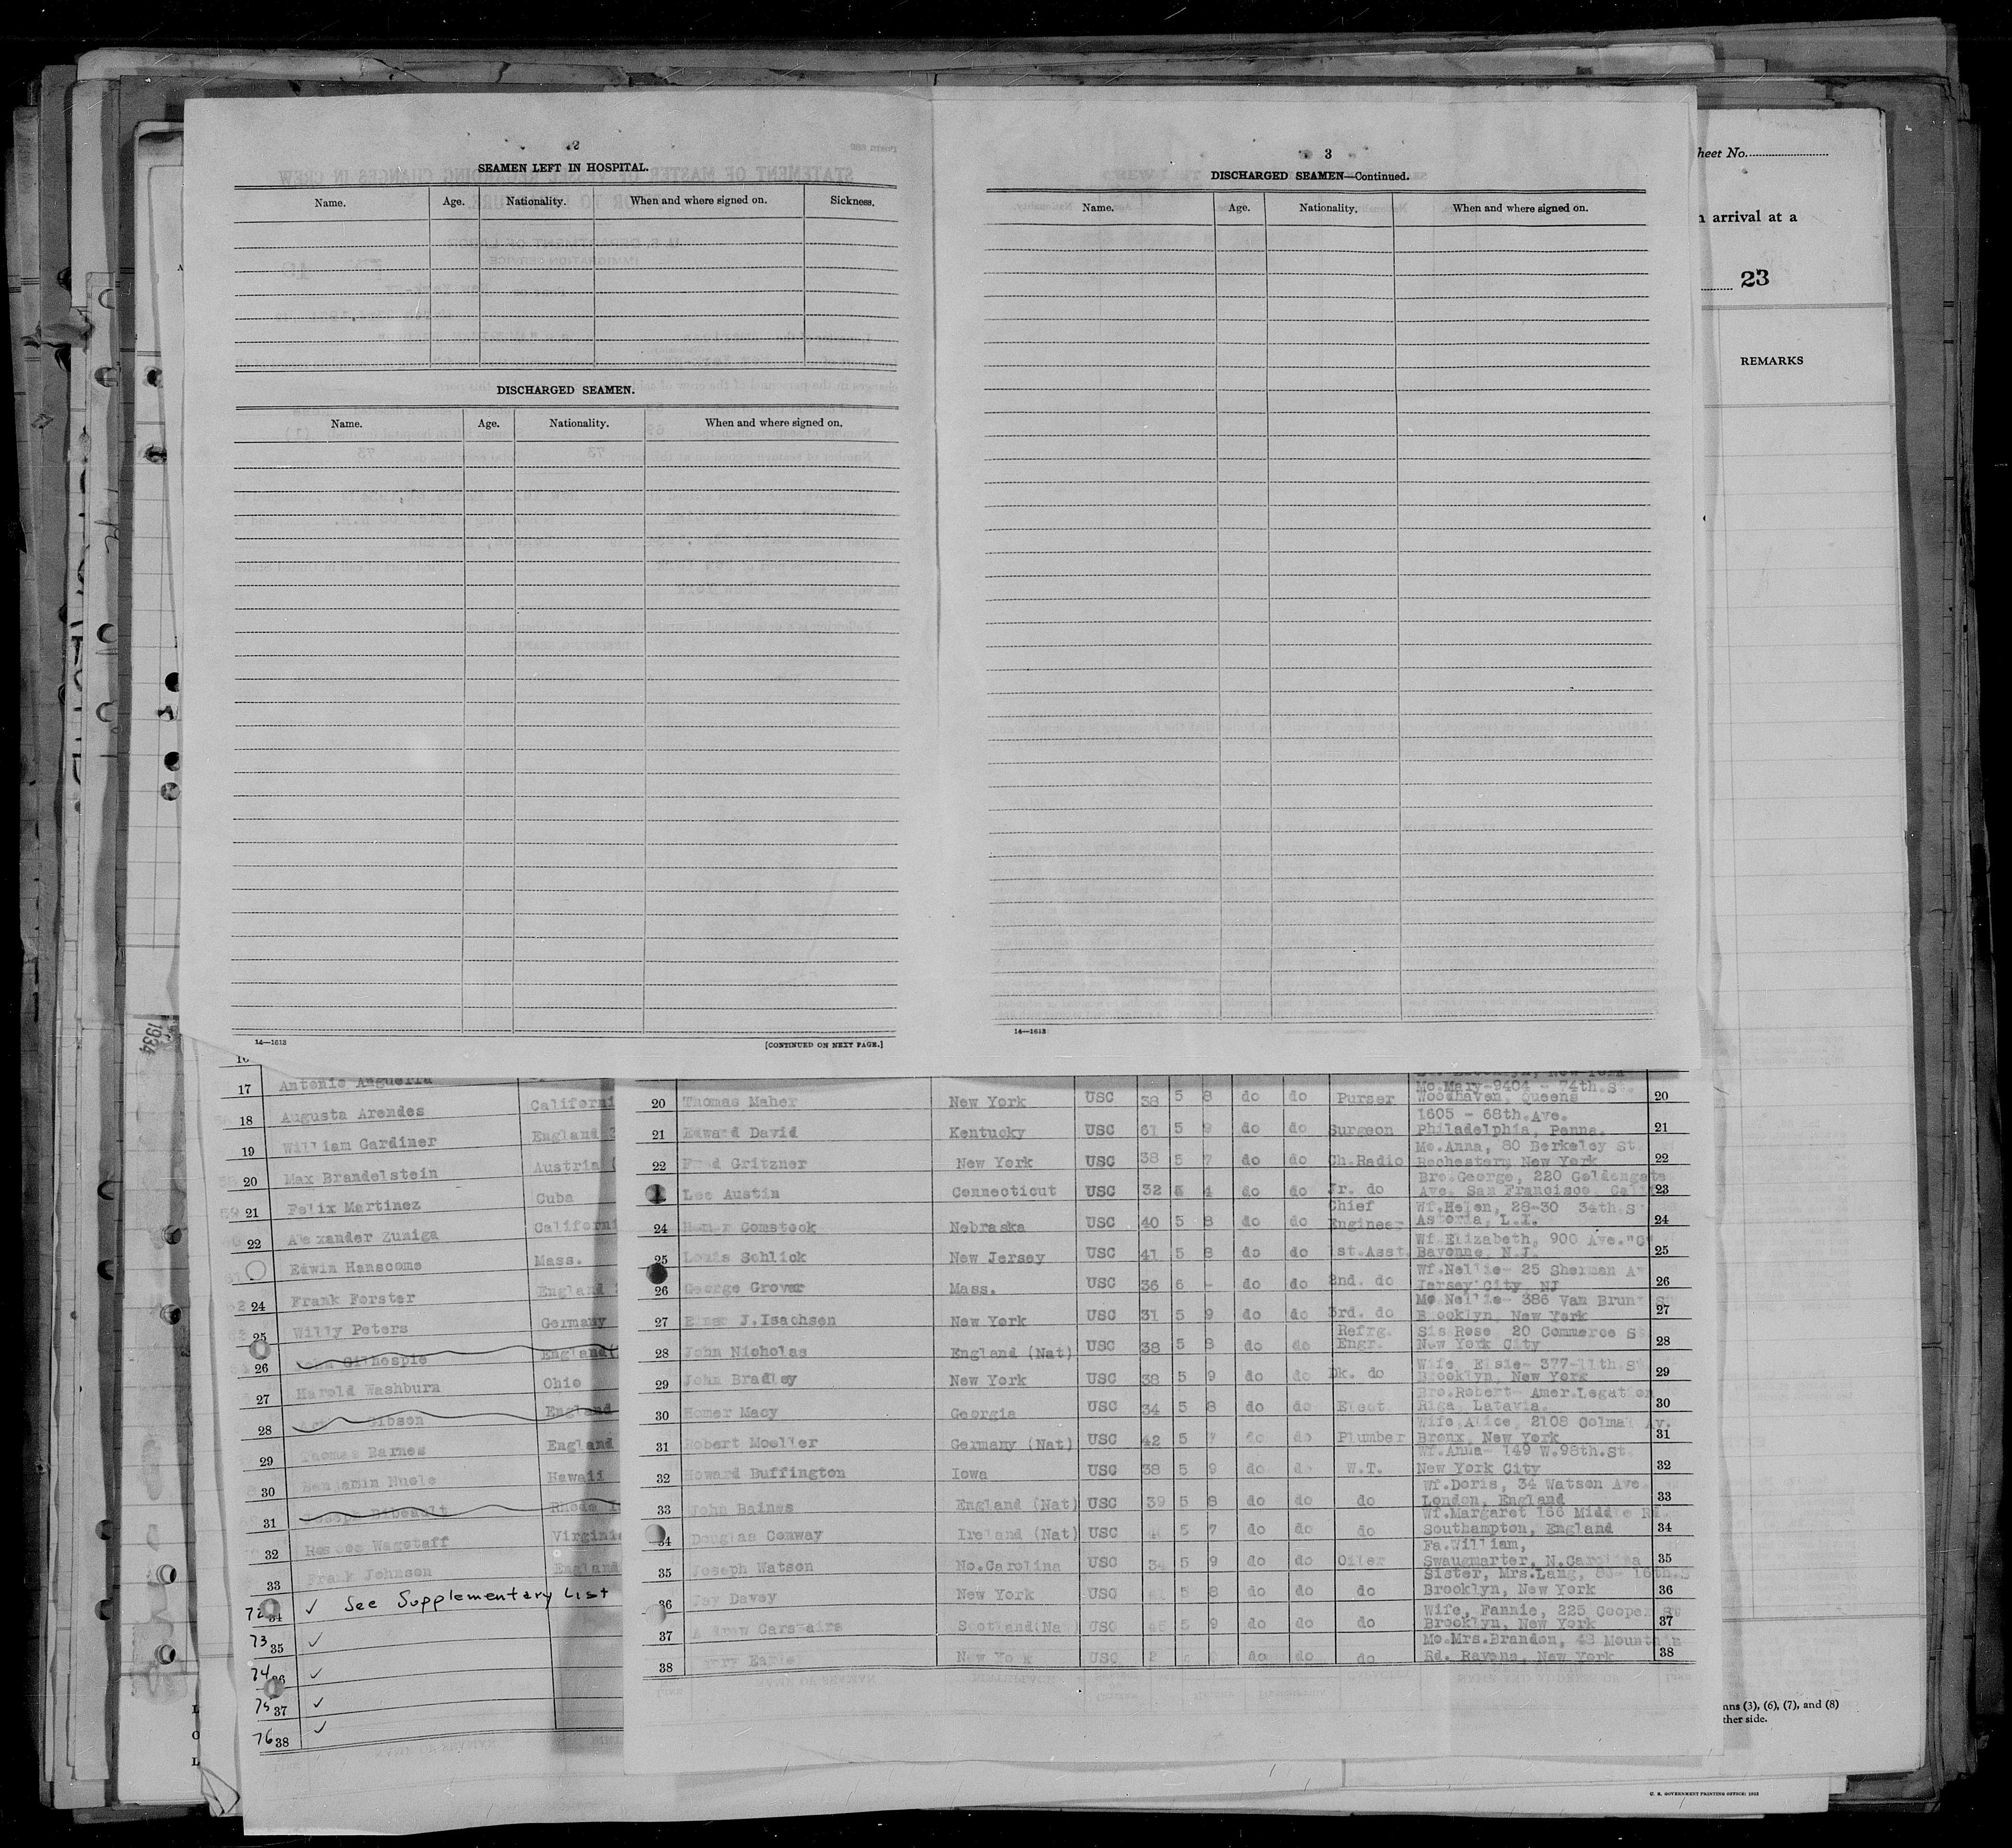 2
SEAMEN LEFT IN HOSPITAL.
Name. Age. Nationality. When and where signed on. Sickness.
DISCHARGED SEAMEN.
Name. Age. Nationality. When and where signed on.
14—1613 [CONTINUED ON NEXT PAGE.]
3
DISCHARGED SEAMEN—Continued.
Name. Age. Nationality. When and where signed on.
14—1613
heet No.
arrival at a
23
REMARKS
1934
16
17 Antonio Anguerra
18 Augusta Arendes Californi
19 William Gardiner England
20 Max Brandelstein Austria
21 Felix Martinez Cuba
22 Alexander Zuniga Californi
Edwin Hanscome Mass.
24 Frank Forster England
25 Willy Peters Germany
26 Gilhespie England
27 Harold Washburn Ohio
28 Gibson England
29 Thomas Barnes England
30 Benjamin Hawaii
31 Joseph Bibeault Rhode I
32 Roscoe Wagstaff Virginia
33 Frank Johnson England
72 34 ✓ See Supplementary List
73 35 ✓
74 36 ✓
75 37 ✓
76 38 ✓
Mo.Mary-9404 - 74th.St.
20 Thomas Maher New York USC 38 5 8 do do Purser Woodhaven, Queens 20
1605 - 68th.Ave.
21 Edward David Kentucky USC 61 5 9 do do Surgeon Philadelphia, Penna. 21
Mo.Anna, 80 Berkeley St
22 Fred Gritzner New York USC 38 5 7 do do Ch.Radio Rochester, New York 22
Bro.George, 220 Goldengate
Lee Austin Connecticut USC 32 5 4 do do Jr. do Ave. San Francisco, Calif 23
Chief Wf.Helen, 28-30 34th.S
24 Homer Comstock Nebraska USC 40 5 8 do do Engineer Astoria, L.I. 24
Wf Elizabeth, 900 Ave."C"
25 Louis Schlick New Jersey USC 41 5 8 do do 1st.Asst. Bayonne, N.J. 25
Wf.Nellie- 25 Sherman Av
26 George Grover Mass. USC 36 6 - do do 2nd. do Jersey City, NJ 26
Mo Nellie- 386 Van Brunt S
27 J.Isachsen New York USC 31 5 9 do do 3rd. do Brooklyn, New York 27
Refrg. Sis Rose, 20 Commerce S
28 John Nicholas England (Nat) USC 38 5 8 do do Engr. New York City 28
Wife, Elsie- 377-11th.S
29 John Bradley New York USC 38 5 9 do do Dk. do Brooklyn, New York 29
Bro.Robert- Amer.Legation
30 Homer Macy Georgia USC 34 5 8 do do Elect. Riga, Latavia. 30
Wife Alice, 2108 Colma Av.
31 Robert Moeller Germany (Nat) USC 42 5 7 do do Plumber Bronx, New York 31
Wf.Anna- 149 W.98th.St.
32 Howard Buffington Iowa USC 38 5 9 do do W.T. New York City 32
Wf.Doris, 34 Watson Ave
33 John Baines England (Nat) USC 39 5 8 do do do London, England 33
Wf.Margaret 166 Middle Rd.
34 Douglas Conway Ireland (Nat) USC 5 7 do do do Southampton, England 34
Fa.William,
35 Joseph Watson No.Carolina USC 34 5 9 do do Oiler Swaugmarter, N.Carolina 35
Sister, Mrs.Lang, 16th.S
36 Jay Davey New York USC 41 5 8 do do do Brooklyn, New York 36
Wife, Fannie, 225 Cooper St
37 Andrew Carstairs Scotland(Nat) USC 45 5 9 do do do Brooklyn, New York 37
Mo.Mrs.Brandon, 48 Mountain
38 New York USC do do do Rd. Ravena, New York 38
mns (3), (6), (7), and (8)
ther side.
U. S. GOVERNMENT PRINTING OFFICE: